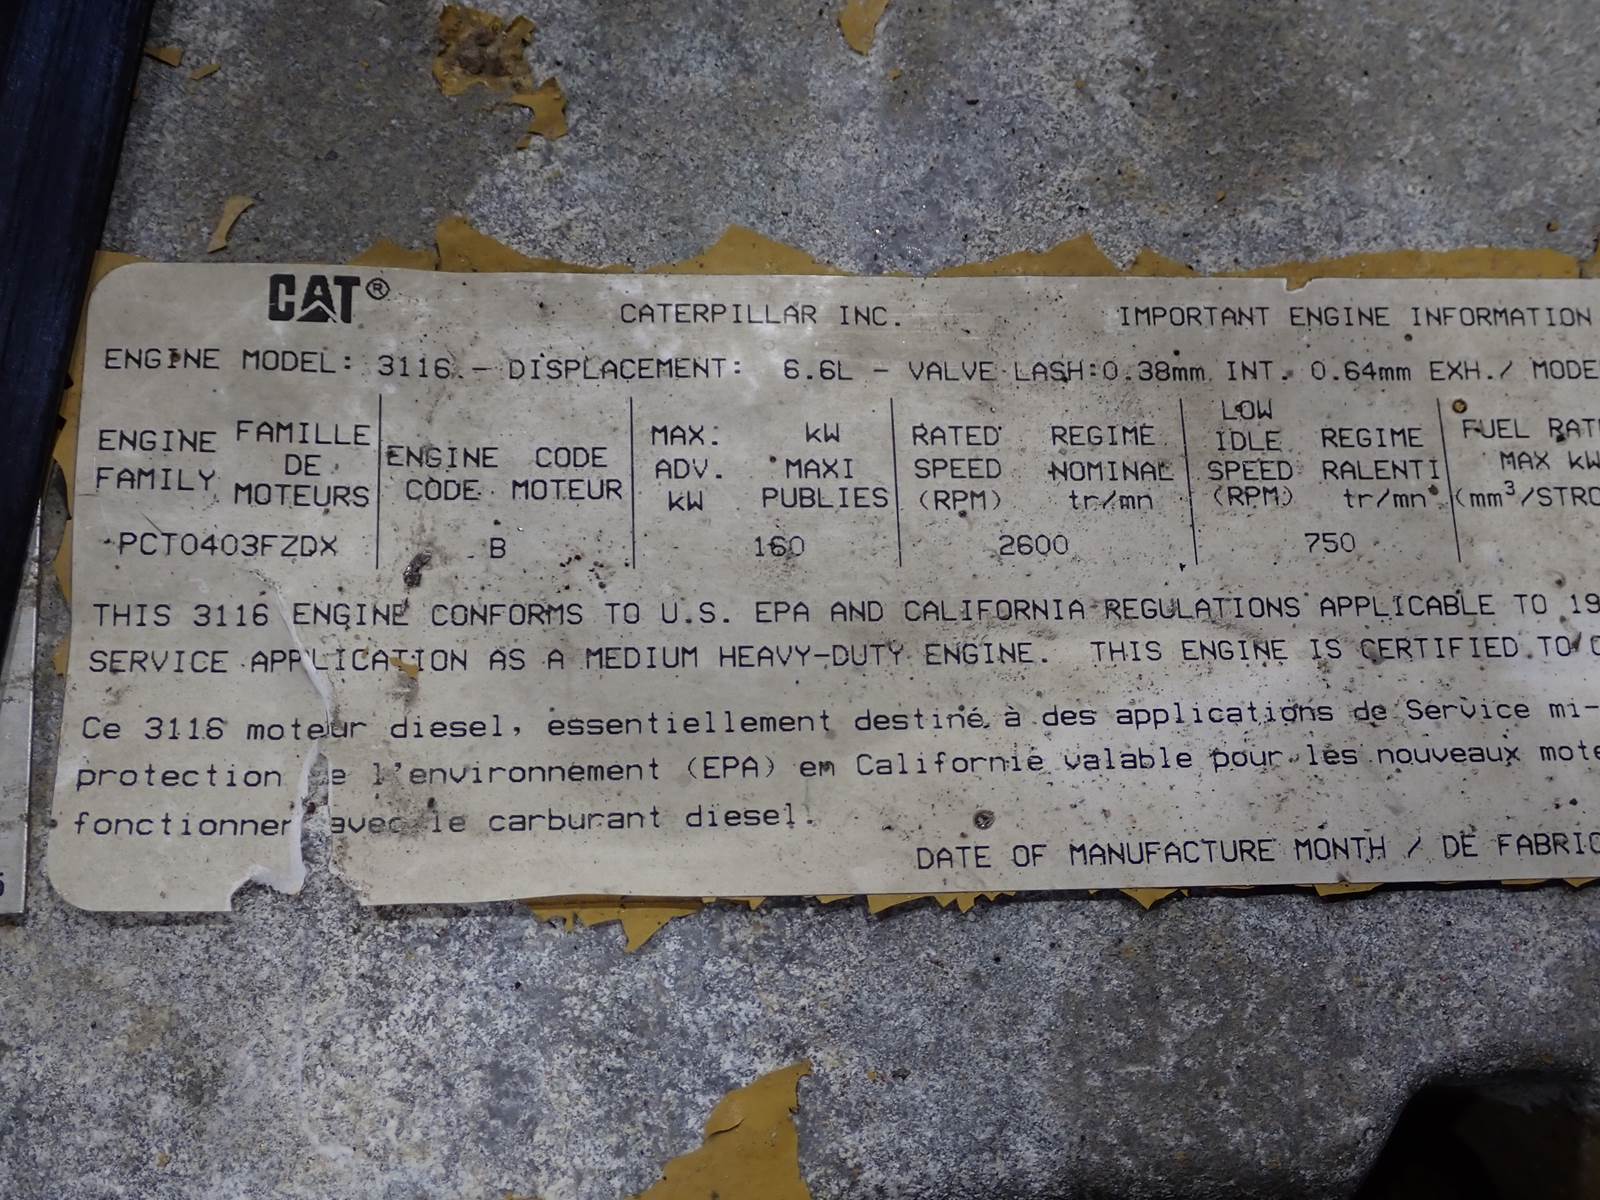 CAT®
CATERPILLAR INC. IMPORTANT ENGINE INFORMATION
ENGINE MODEL: 3116 - DISPLACEMENT: 6.6L - VALVE LASH:0.38mm INT. 0.64mm EXH./ MODE
ENGINE FAMILY FAMILLE DE MOTEURS
ENGINE CODE CODE MOTEUR
MAX. ADV. kW kW MAXI PUBLIES
RATED SPEED (RPM) REGIME NOMINAL tr/mn
LOW IDLE SPEED (RPM) REGIME RALENTI tr/mn
FUEL RAT MAX kW (mm³/STRO
PCT0403FZDX B 160 2600 750
THIS 3116 ENGINE CONFORMS TO U.S. EPA AND CALIFORNIA REGULATIONS APPLICABLE TO 19
SERVICE APPLICATION AS A MEDIUM HEAVY-DUTY ENGINE. THIS ENGINE IS CERTIFIED TO O
Ce 3116 moteur diesel, essentiellement destiné à des applications de Service mi-
protection de l'environnement (EPA) en Californie valable pour les nouveaux mote
fonctionner avec le carburant diesel.
DATE OF MANUFACTURE MONTH / DE FABRIC